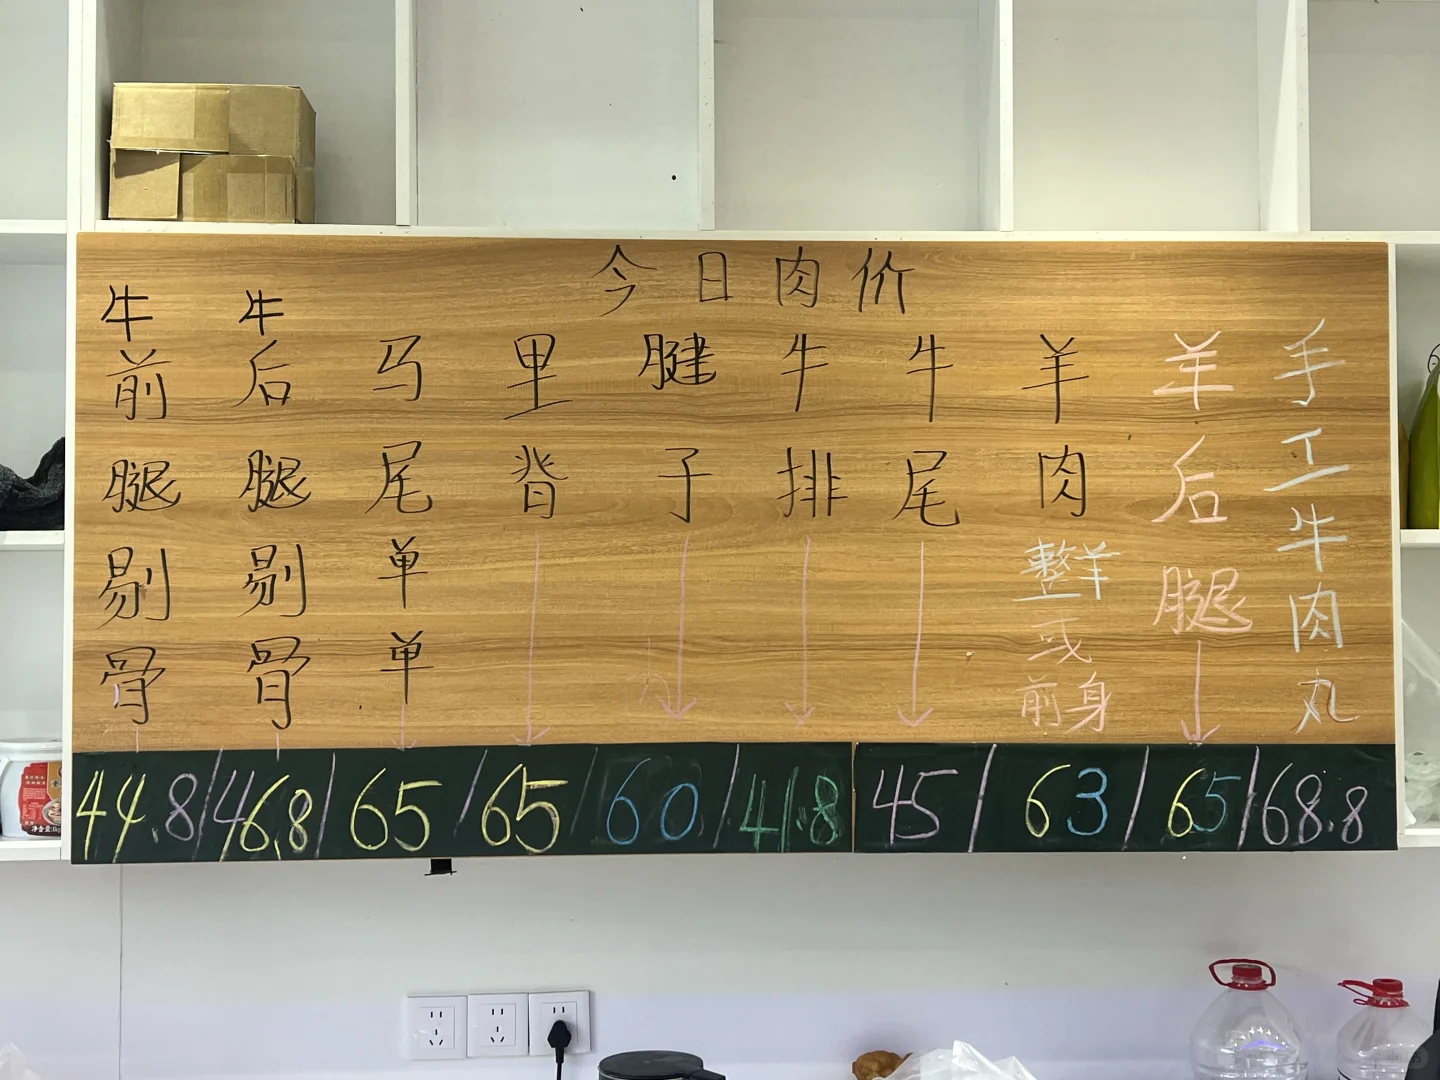 今日肉价
牛前腿剔骨
牛后腿剔骨
马尾单单
里脊
腱子
牛排
牛尾
羊肉
整羊
或
前身
羊后腿
手工牛肉丸
44.8/46.8/65/65/60/41.8
45/63/65/68.8
净含量